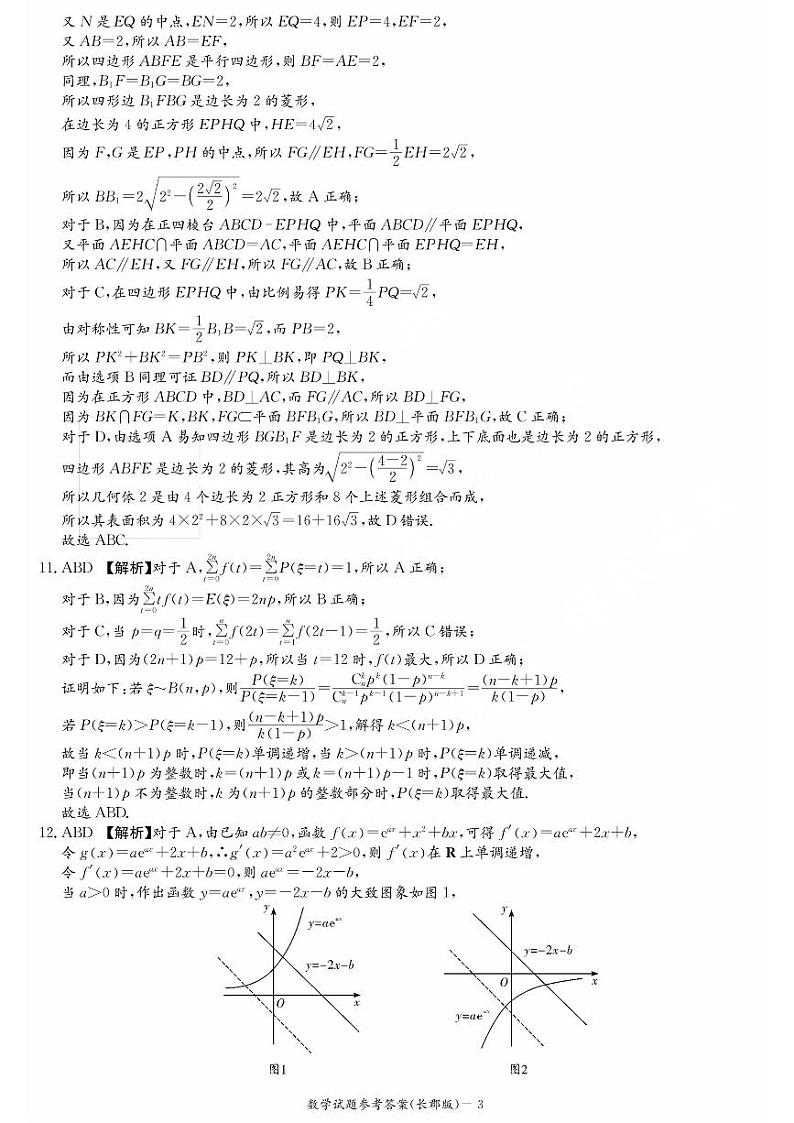 又 N 是 EQ 的中点,EN=2,所以 EQ=4,则 EP=4,EF=2,
又 AB=2,所以 AB=EF,
所以四边形 ABFE 是平行四边形,则 BF=AE=2,
同理,B₁F=B₁G=BG=2,
所以四形边 B₁FBG 是边长为 2 的菱形,
在边长为 4 的正方形 EPHQ 中,HE=4√2,
因为 F,G 是 EP,PH 的中点,所以 FG∥EH,FG=1/2 EH=2√2,
所以 BB₁=2√(2²-(2√2/2)²)=2√2,故 A 正确;
对于 B,因为在正四棱台 ABCD-EPHQ 中,平面 ABCD∥平面 EPHQ,
又平面 AEHC∩平面 ABCD=AC,平面 AEHC∩平面 EPHQ=EH,
所以 AC∥EH,又 FG∥EH,所以 FG∥AC,故 B 正确;
对于 C,在四边形 EPHQ 中,由比例易得 PK=1/4 PQ=√2,
由对称性可知 BK=1/2 B₁B=√2,而 PB=2,
所以 PK²+BK²=PB²,则 PK⊥BK,即 PQ⊥BK,
而由选项 B 同理可证 BD∥PQ,所以 BD⊥BK,
因为在正方形 ABCD 中,BD⊥AC,而 FG∥AC,所以 BD⊥FG,
因为 BK∩FG=K,BK,FG⊂平面 BFB₁G,所以 BD⊥平面 BFB₁G,故 C 正确;
对于 D,由选项 A 易知四边形 BGB₁F 是边长为 2 的正方形,上下底面也是边长为 2 的正方形,
四边形 ABFE 是边长为 2 的菱形,其高为√(2²-((4-2)/2)²)=√3,
所以几何体 2 是由 4 个边长为 2 正方形和 8 个上述菱形组合而成,
所以其表面积为 4×2²+8×2×√3=16+16√3,故 D 错误.
故选 ABC.
11. ABD 【解析】对于 A,∑_{t=0}^{2n} f(t)=∑_{t=0}^{2n} P(ξ=t)=1,所以 A 正确;
对于 B,因为∑_{t=0}^{2n} tf(t)=E(ξ)=2np,所以 B 正确;
对于 C,当 p=q=1/2 时,∑_{t=0}^{n} f(2t)=∑_{t=1}^{n} f(2t-1)=1/2,所以 C 错误;
对于 D,因为(2n+1)p=12+p,所以当 t=12 时,f(t)最大,所以 D 正确;
证明如下:若 ξ~B(n,p),则 P(ξ=k)/P(ξ=k-1)=C_n^k p^k(1-p)^{n-k}/C_n^{k-1} p^{k-1}(1-p)^{n-k+1}=(n-k+1)p/k(1-p),
若 P(ξ=k)>P(ξ=k-1),则 (n-k+1)p/k(1-p)>1,解得 k<(n+1)p,
故当 k<(n+1)p 时,P(ξ=k)单调递增,当 k>(n+1)p 时,P(ξ=k)单调递减,
即当(n+1)p 为整数时,k=(n+1)p 或 k=(n+1)p-1 时,P(ξ=k)取得最大值,
当(n+1)p 不为整数时,k 为(n+1)p 的整数部分时,P(ξ=k)取得最大值.
故选 ABD.
12. ABD 【解析】对于 A,由已知 ab≠0,函数 f(x)=e^{ax}+x²+bx,可得 f′(x)=ae^{ax}+2x+b,
令 g(x)=ae^{ax}+2x+b,∴g′(x)=a²e^{ax}+2>0,则 f′(x)在 R 上单调递增,
令 f′(x)=ae^{ax}+2x+b=0,则 ae^{ax}=-2x-b,
当 a>0 时,作出函数 y=ae^{ax},y=-2x-b 的大致图象如图 1,
y
y=ae^{ax}
y=-2x-b
O
x
图1
y
y=-2x-b
O
x
y=ae^{ax}
图2
数学试题参考答案(长郡版)－ 3